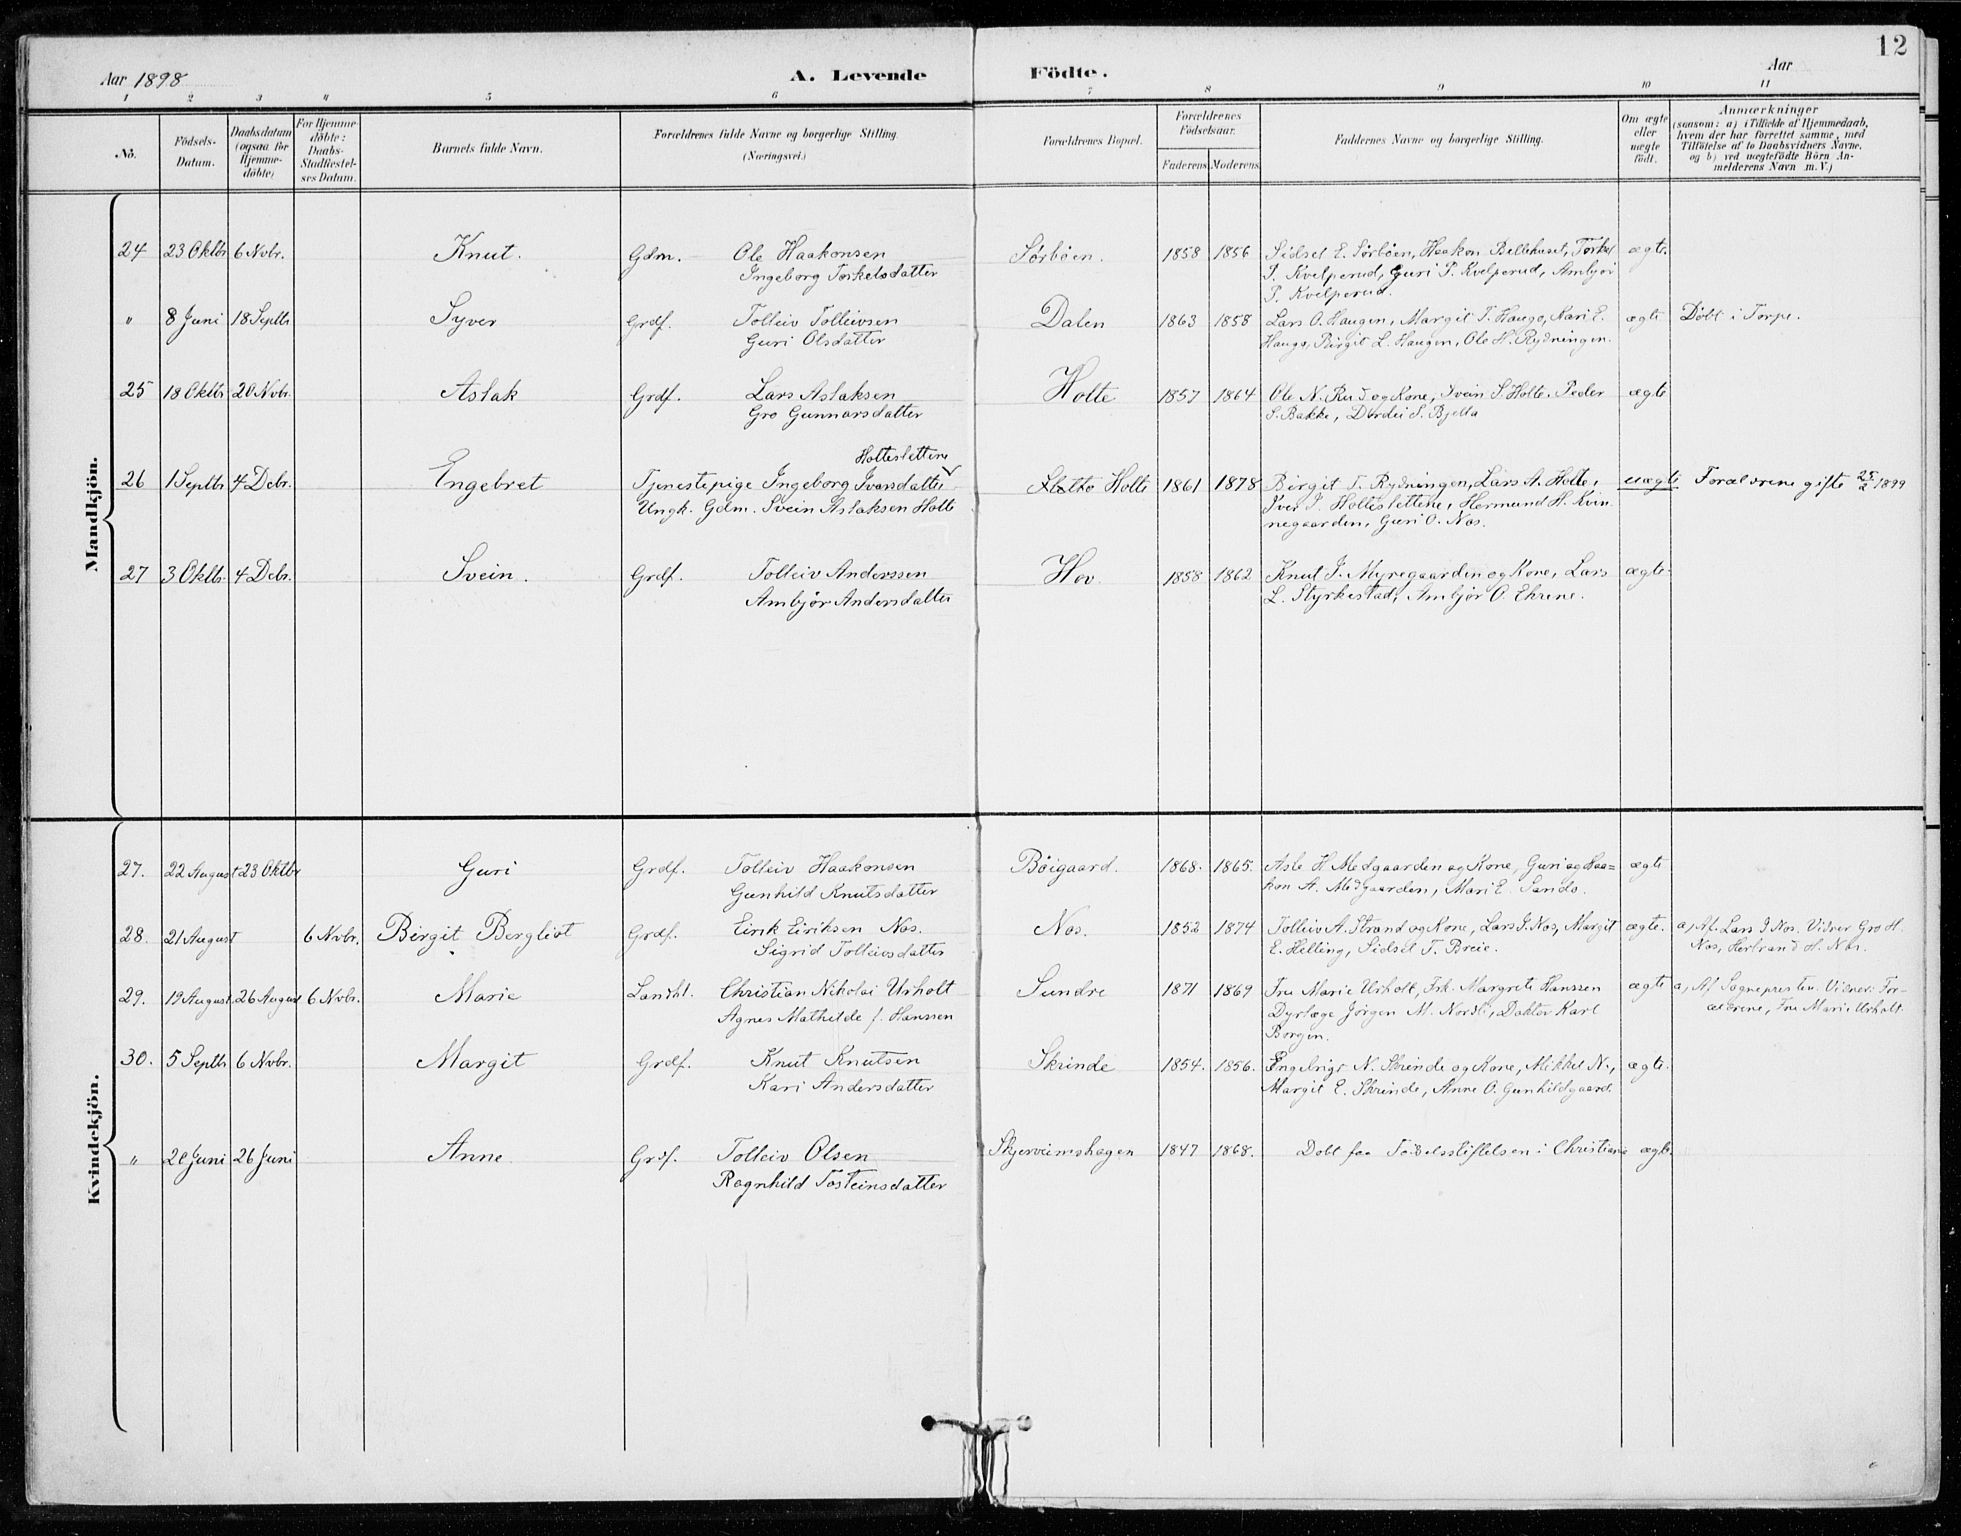 12
Aar 1898 A. Levende Födte. Aar
1 2 3 4 5 6 7 8 9 10 11
No.
Födsels-Datum.
Daabsdatum (ogsaa for Hjemme-döbte)
For Hjemme-döbte: Daabs-Stadfæstel-ses Datum.
Barnets fulde Navn.
Forældrenes fulde Navne og borgerlige Stilling.
(Næringsvei.)
Forældrenes Bopæl.
Forældrenes Födselsaar.
Faderens Moderens
Faddernes Navne og borgerlige Stilling.
Om ægte eller uægte födt.
Anmærkninger
(saasom: a) i Tilfælde af Hjemmedaab,
hvem der har forrettet samme, med
Tilföielse af to Daabsvidners Navne,
og b) ved uægtefödte Börn An-
melderens Navn m. V.)
Mandkjön.
24 23 Oktbr 6 Nvbr. Knut. Gdm. Ole Haakonsen Sørbøen. 1858 1856 Sidsel E. Sørbøen, Haakon Bellehuset, Torkel ægte.
Ingeborg Torkelsdatter T. Kvelperud, Guri P. Kvelperud, Ambjør
P. Kvelperud.
" 8 Juni 18 Septbr Syver Grdf. Tolleiv Tolleivsen Dalen 1863 1858 Lars O. Haugen, Margit T. Haugo, Kari E. ægte Döbt i Torpe.
Guri Olsdatter Haugo, Birgit L. Haugen, Ole H. Rydningen.
25 18 Oktbr 20 Nvbr. Aslak Grdf. Lars Aslaksen Holte 1857 1864 Ole N. Rud og Kone, Svein S. Holte, Peder ægte
Gro Gunnarsdatter S. Bakke, Dordei S. Bjella
Holteslettene
26 1 Septbr 4 Debr. Engebret Tjenestepige Ingeborg Ivarsdatter Holte 1861 1878 Birgit T. Rydningen, Lars A. Holte, uægte Forældrene gifte 25/2 1899
Ungk. Gdm. Svein Aslaksen Holte Iver I. Holteslettene, Hermund H. Kvin-
negaarden, Guri O. Nos.
27 3 Oktbr. 4 Debr. Svein. Grdf. Tolleiv Anderssen Hov. 1858 1862 Knut I. Myregaarden og Kone, Lars ægte.
Ambjør Andersdatter L. Styrkestad, Ambjør O. Ehrene.
Kvindekjön.
27. 22 August 23 Oktbr Guri Grdf. Tolleiv Haakonsen Bøigaard. 1868. 1865. Asle H. Medgaarden og Kone, Guri og Haa= ægte
Gunhild Knutsdatter kon A. Medgaarden, Mari E. Sando.
28. 21 August 6 Nvbr. Birgit Bergliot Grdf. Eirik Eiriksen Nos. Nos. 1852 1874 Tolleiv A. Strand og Kone, Lars I. Nos, Margit ægte. a, Af. Lars I Nos. Vidner Gro H.
Sigrid Tolleivsdatter E. Helling, Sidsel T. Breie. Nos, Herbrand H. Nos.
29. 19 August 26 August 6 Nvbr. Marie Landhl. Christian Nikolai Urholt Sundre 1871 1869 Fru Marie Urholt, Frk. Margrete Hanssen ægte a, Af Sognepresten. Vidner: For-
Agnes Mathilde f. Hanssen Dyrlæge Jørgen M. Nordli, Doktor Karl ældrene, Fru Marie Urholt.
Borgin.
30. 5 Septbr 6 Nvbr. Margit Grdf. Knut Knutsen Skrinde 1854. 1856. Engebrigt N. Skrinde og Kone, Mikkel N., ægte.
Kari Andersdatter Margit E. Skrinde, Anne O. Gunhildgaard.
" 20 Juni 26 Juni Anne Grdf. Tolleiv Olsen Skjerveimshagen 1847 1868. Döbt paa Födselsstiftelsen i Christiania ægte.
Ragnhild Tosteinsdatter